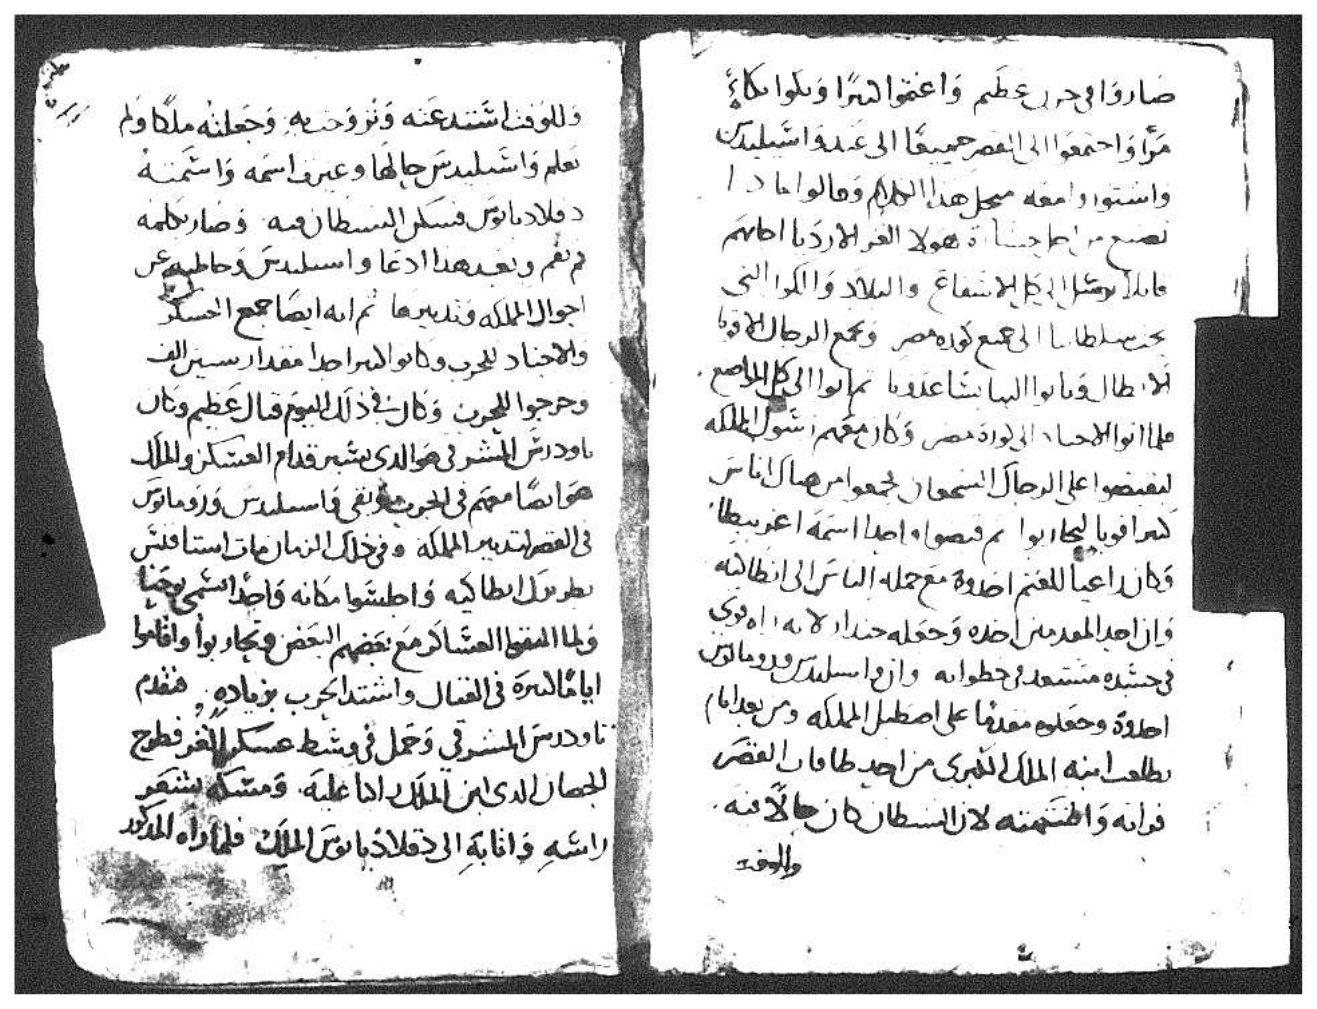 صاروا في حزن عظيم واغتموا كثيرا وبكوا بكاءً
مرًا واجتمعوا الى القصر جميعًا الى عند واسيليدس
واستوروا معه مجل هذا الكلام وقالوا ماذا
نصنع من اجل هولا الغر الاردیا اجابهم
قايلا نرسل الى كل الاسقاع والبلاد والكوا التي
تحت سلطاننا الى جميع كورة مصر ونجمع الرجال الاقويا
الابطال وياتوا الينا يساعدونا ثم اتوا الى كل المواضع
فلما اتوا الاجناد الى كورة مصر وكان معهم رسول المملكه
ليقبضوا على الرجال الشجعان فجمعوا من هناك اناس
كثير اقويا ليحاربوا ثم قبضوا واحدا اسمه اغريبيطا
وكان راعيا للغنم اخدوة مع جمله الناس الى انطاكيه
وان احد المقدمين اخده وجعله جندار لانه راه قوى
في جسده مستعد في خطواته وان واسيليدس ورومانوس
اخدوة وجعلوه مقدمًا على اصطبل المملكه ومن بعد ايام
تطلعت ابنه الملك الكبرى من احد طاقات القصر
فراته واشتهته لان الشيطان كان حالًا فيه
وللوقت
وللوقت اشتد عنه وتزوجت به وجعلته ملكًا ولم
تعلم واسيليدس حالها وغيرت اسمه واسمته
دقلاديانوس فسكن الشيطان فيه وصار بكلمه
فم بفم وبعد هذا ادعا واسيليدس وخاطبه عن
احوال المملكه وتدبيرها ثم انه ايضًا جمع العسكر
والاجناد للحرب وكانوا كثيرا جدا مقدار ستين الف
وخرجوا للحرب وكان في ذلك اليوم قتال عظيم وكان
تاودرس المشرقي هو الذي يسير قدام العسكر والملك
هو ايضًا معهم في الحرب وبقى واسيليدس ورومانوس
في القصر لتدبير المملكه وفي ذلك الزمان مات
بطريرك انطاكيه واجلسوا مكانه واحدًا اسمه يوحنا
ولما التقوا العساكر مع بعضهم البعض وتحاربوا واقاموا
ايامًا كثيرة في القتال واشتد الحرب بزياده فتقدم
تاودرس المشرقي وحمل في وسط عسكر الغر فطرح
الحصان الذي ابن الملك راكبا عليه ومسكه بشعر
راسه واتا به الى دقلاديانوس الملك فلما راه المذكور